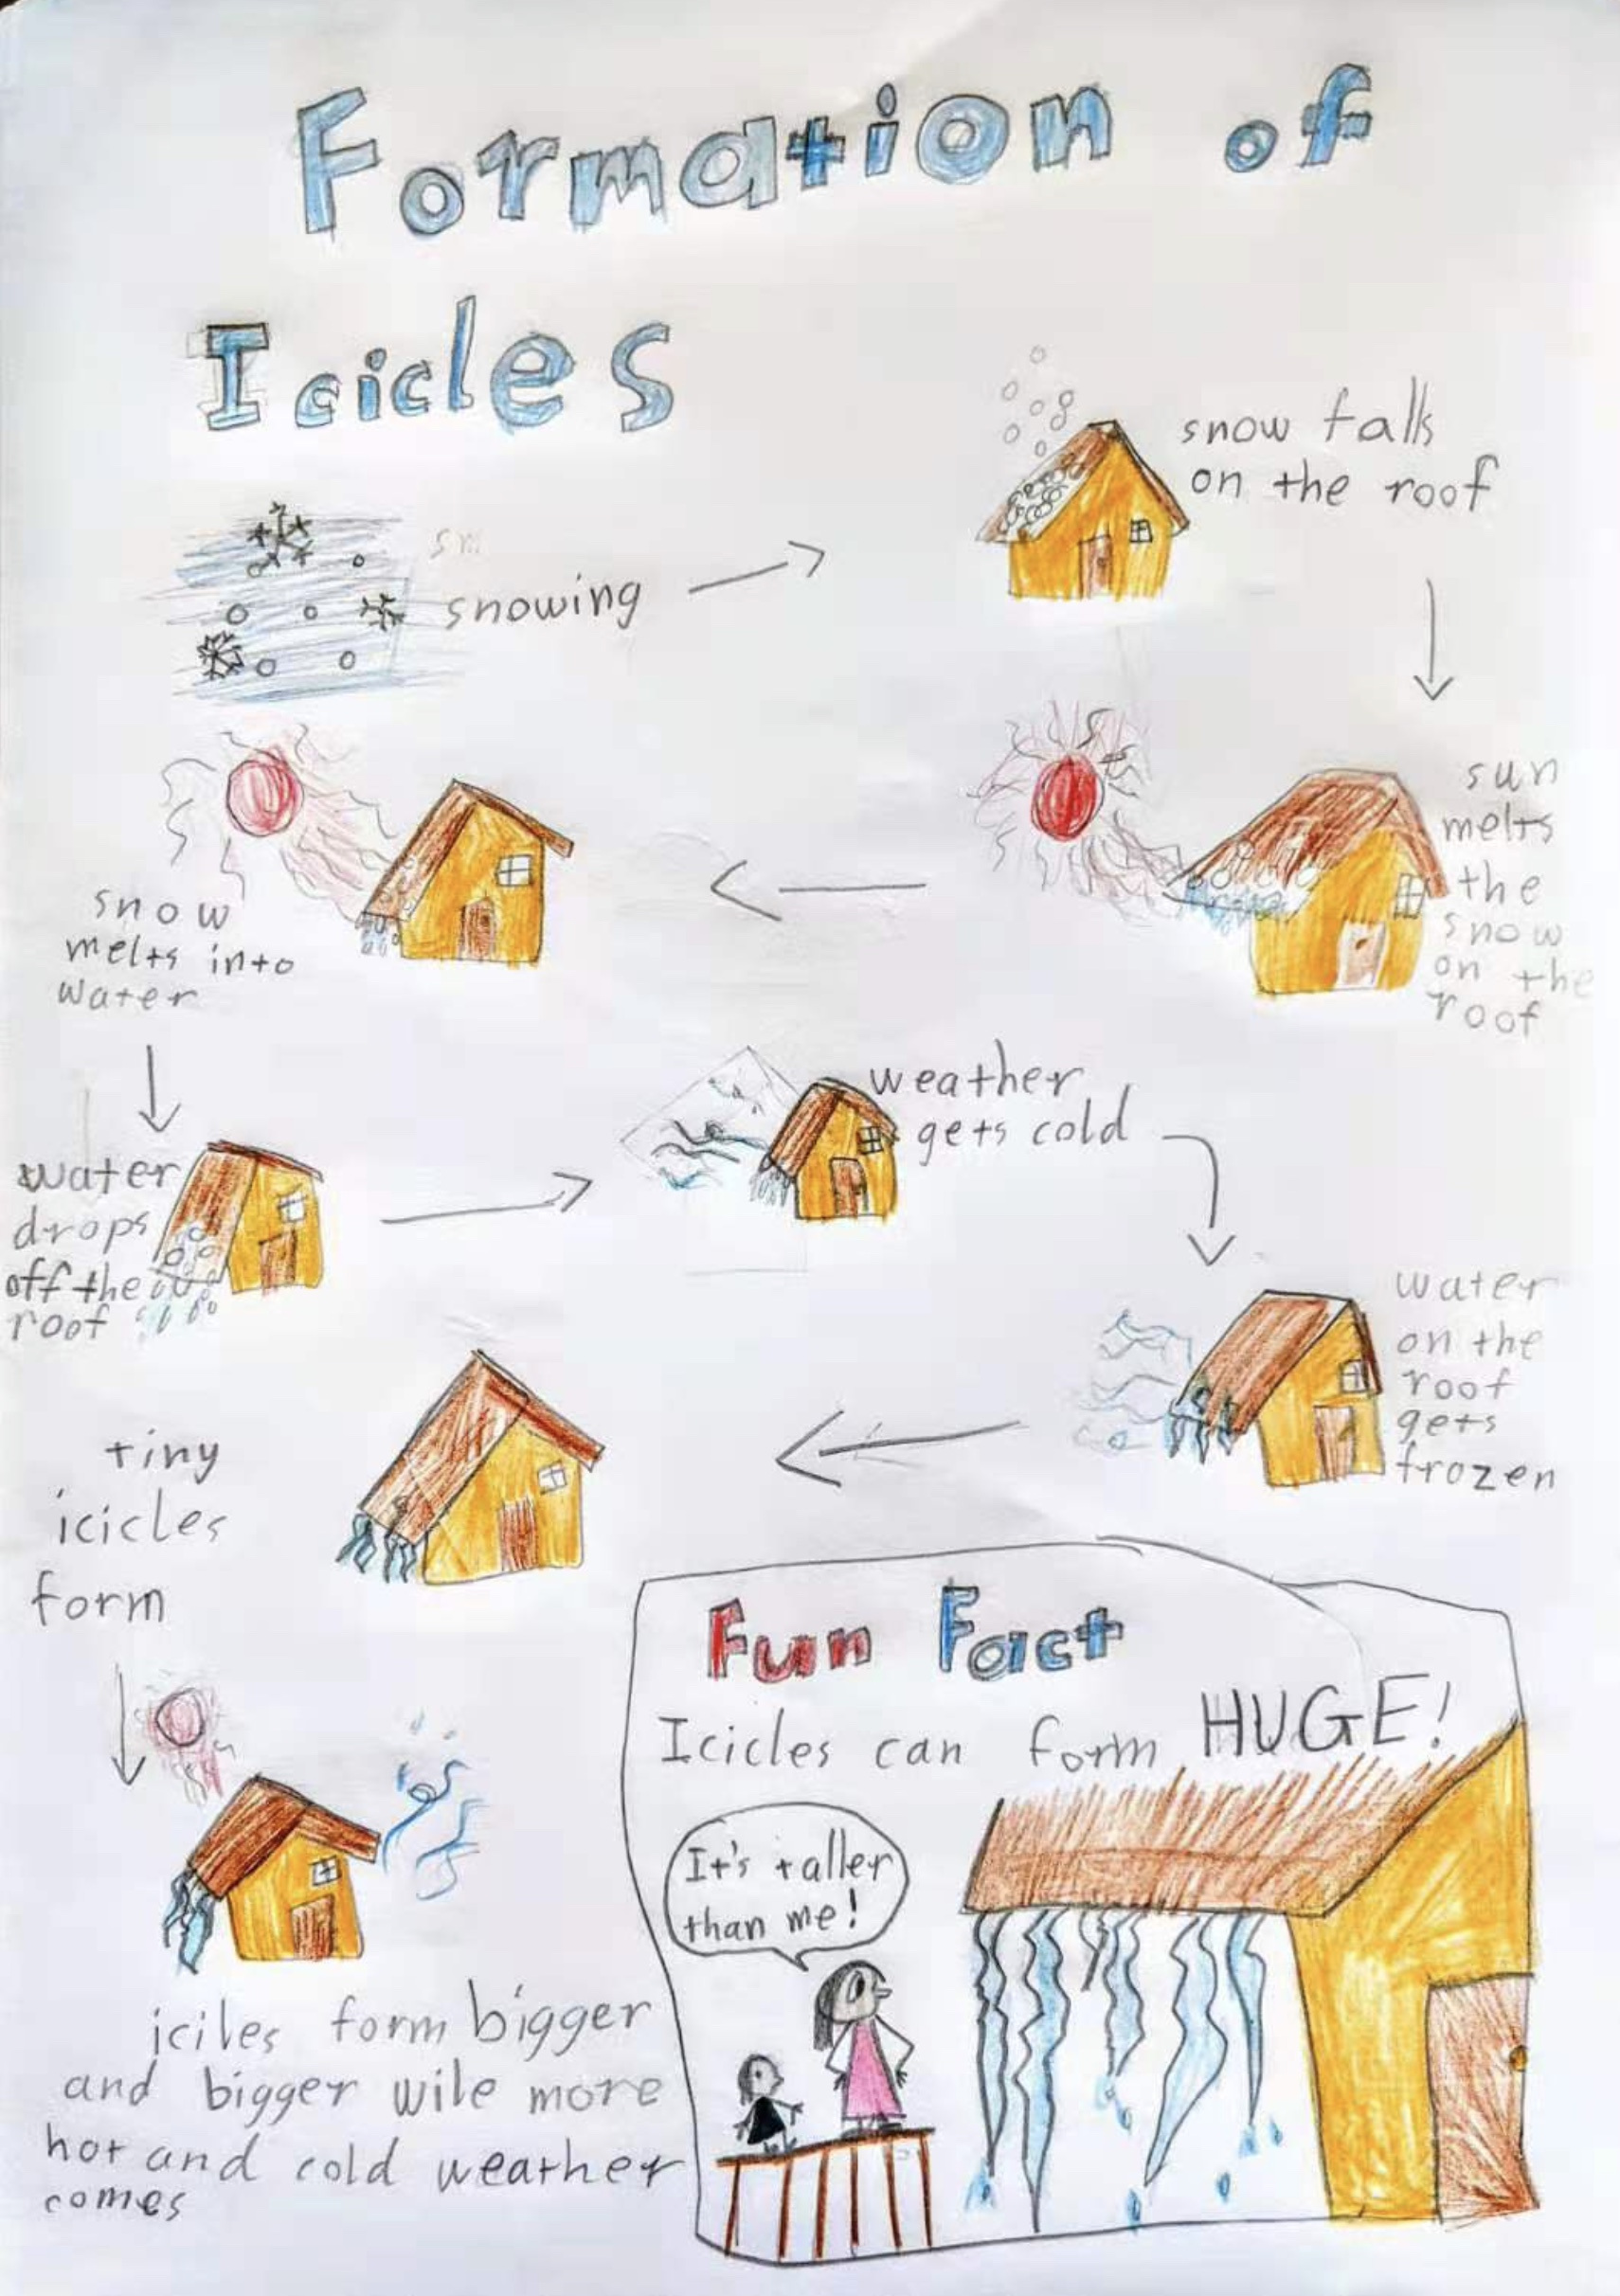 Formation of
Icicles
sn
snowing
snow falls
on the roof
sun
melts
the
snow
on the
roof
snow
melts into
water
water
drops
off the
roof
weather
gets cold
water
on the
roof
gets
frozen
tiny
icicles
form
iciles form bigger
and bigger wile more
hot and cold weather
comes
Fun Fact
Icicles can form HUGE!
It's taller
than me!